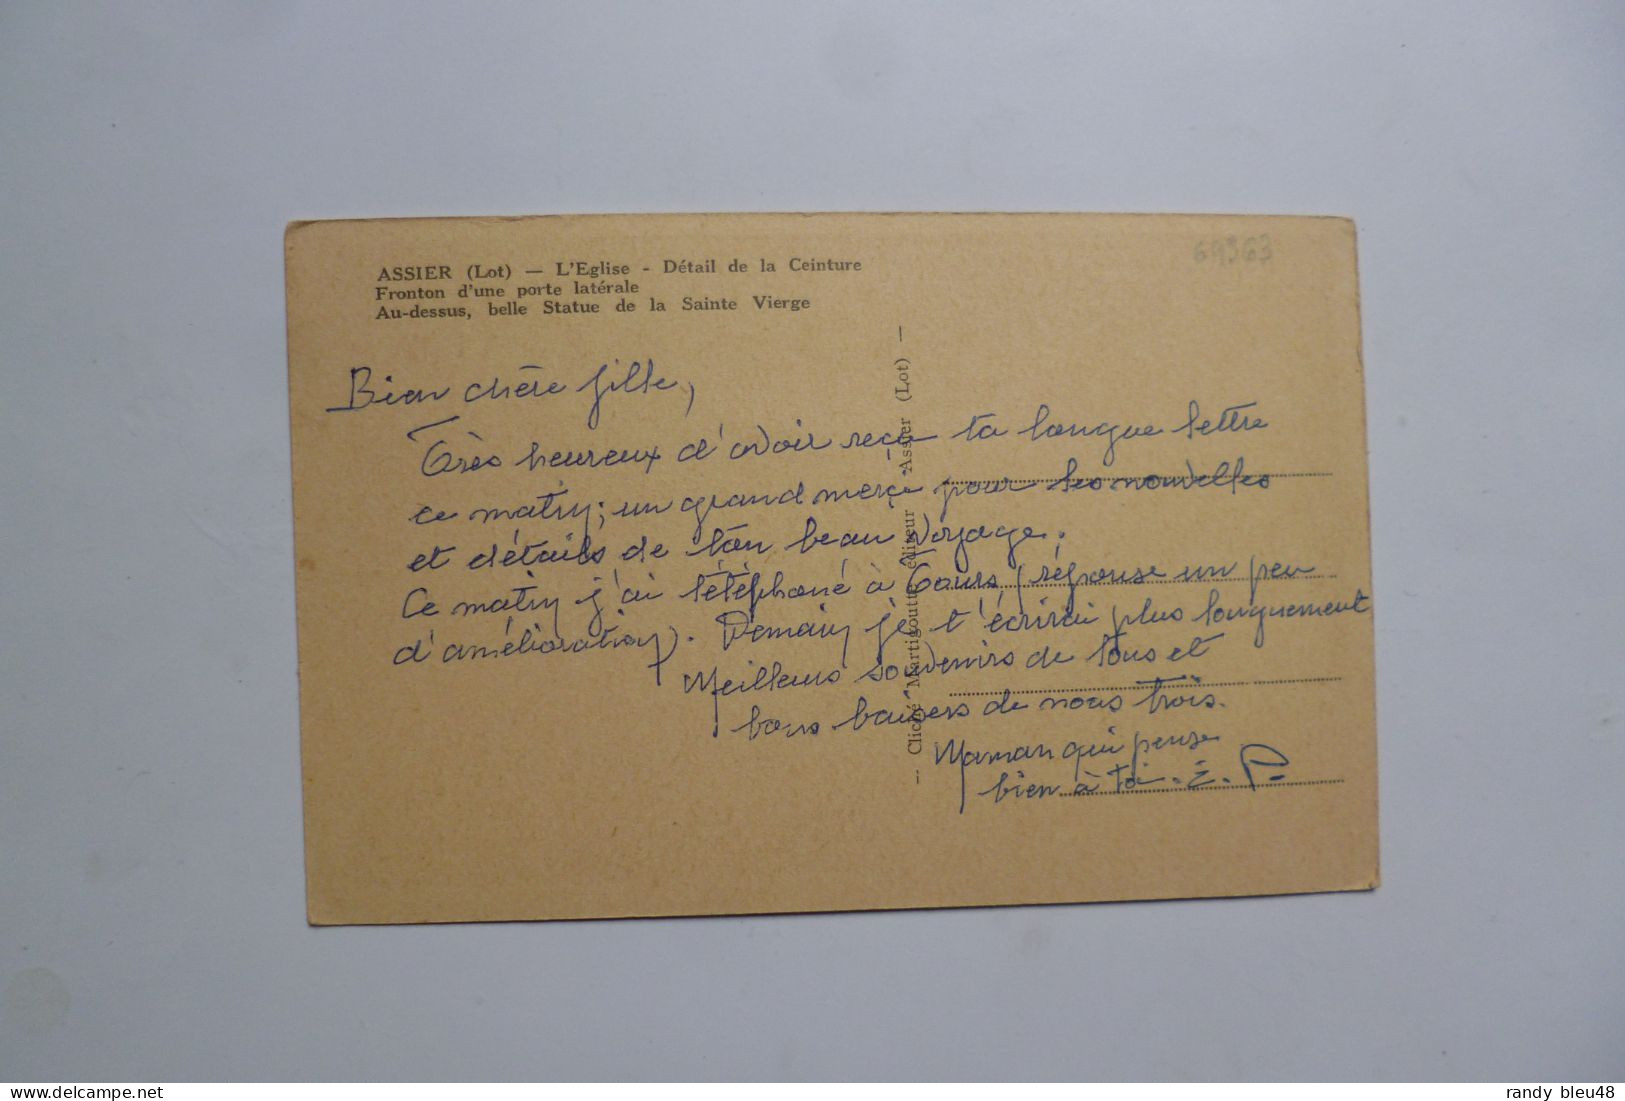 69363
ASSIER (Lot) — L'Eglise - Détail de la Ceinture
Fronton d'une porte latérale
Au-dessus, belle Statue de la Sainte Vierge
— Cliché Martigoutte, éditeur Assier (Lot) —
Bien chère fille,
Très heureux d'avoir reçu ta longue lettre
ce matin ; un grand merci pour les nouvelles
et détails de ton beau voyage.
Ce matin j'ai téléphoné à Tours, (réponse un peu
d'amélioration). Demain je t'écrirai plus longuement
Meilleurs souvenirs de tous et
bons baisers de nous trois.
Maman qui pense
bien à toi.
www.delcampe.net
randy bleu48